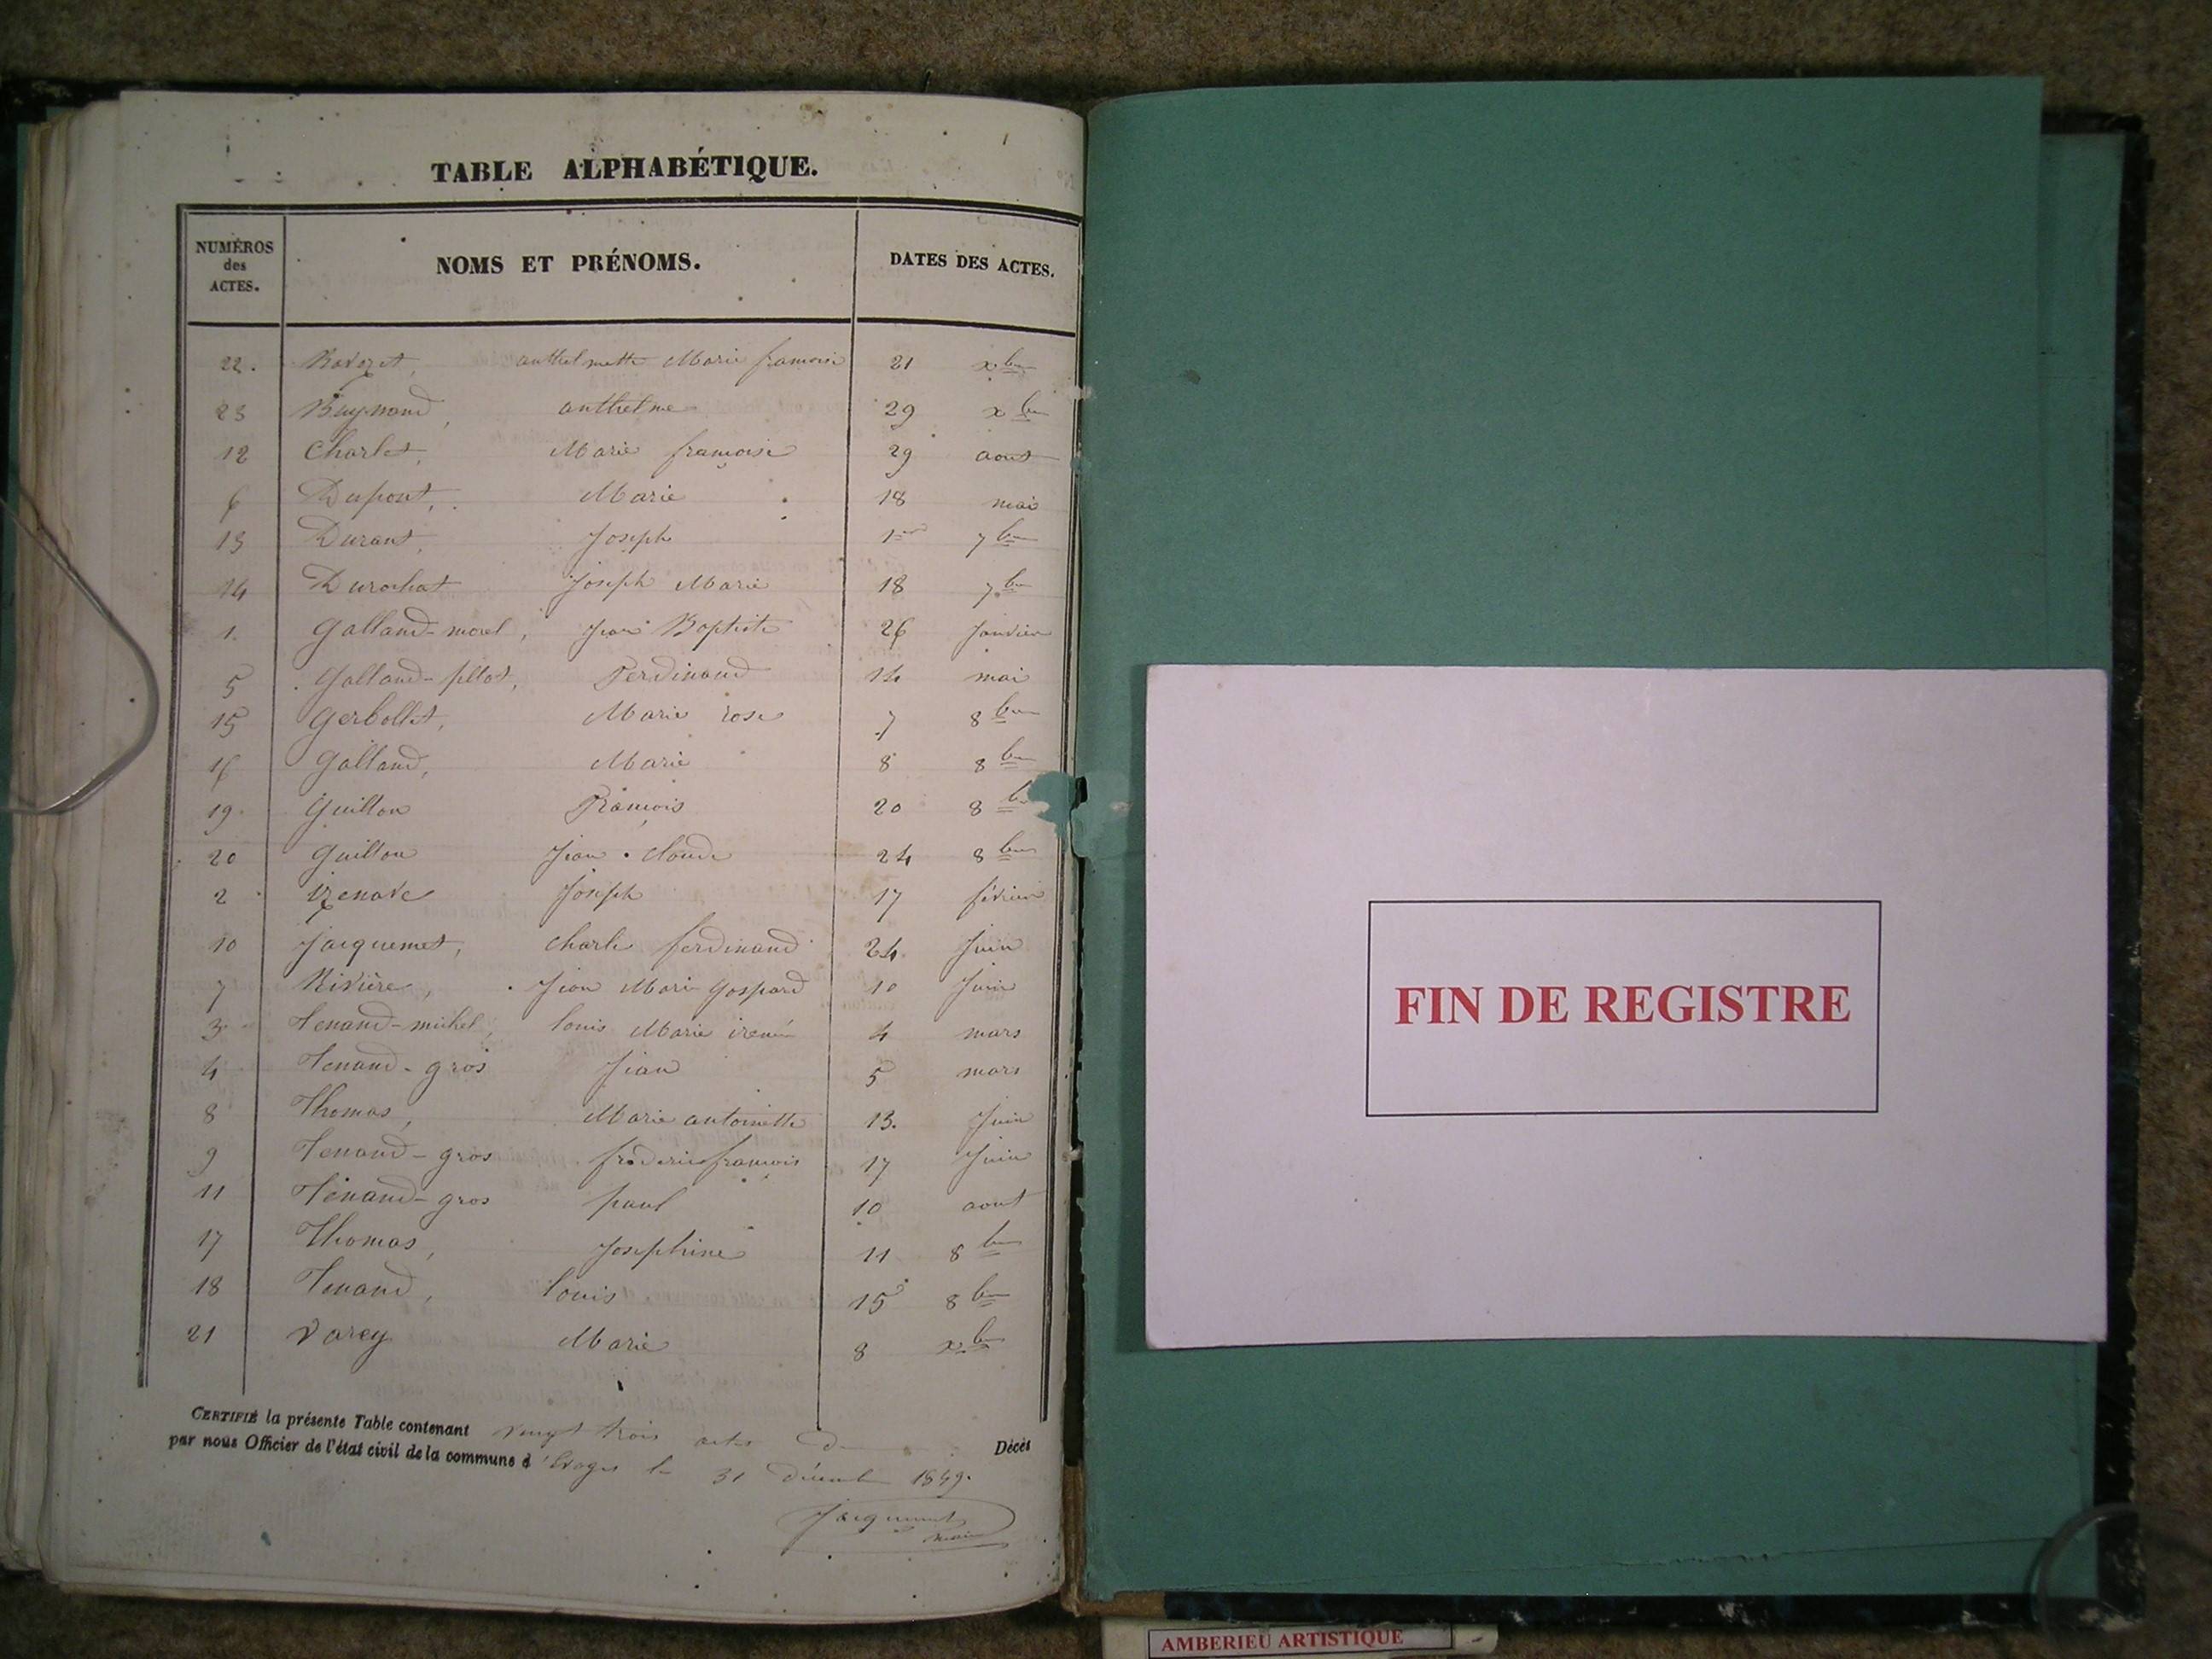 TABLE ALPHABÉTIQUE.
NUMÉROS des ACTES. NOMS ET PRÉNOMS. DATES DES ACTES.
22. anthelmette Marie francoise 21 xbre
23 Buynand, anthelme 29 xbre
12 Charlet, Marie francoise 29 aout
6 Dupont, Marie 18 mai
13 Durant, Joseph 1er 7bre
14 Durochat Joseph Marie 18 7bre
1. Galland-morel, Jean Baptiste 26 Janvier
5 Galland-pillot, Ferdinand 14 mai
15 Gerbollet, Marie rose 7 8bre
16 Galland, Marie 8 8bre
19. Guillon François 20 8bre
20 Guillon Jean-claude 24 8bre
2 izenave Joseph 17 février
10 Jacquemet, charle ferdinand 24. Juin
7 Rivière, Jean Marie Gaspard 10 Juin
3 Tenand-michel, louis Marie irené 4 mars
4 Tenand-gros Jean 5 mars
8 Thomas, Marie antoinette 13. Juin
9 Tenand-gros frederic françois 17 Juin
11 Tenand-gros paul 10 aout
17 Thomas, Josephine 11 8bre
18 Tenand, louis 15 8bre
21 Varey Marie 8 xbre
CERTIFIÉ la présente Table contenant vingt trois actes de Décès
par nous Officier de l'état civil de la commune d'Evoges le 31 décembre 1849.
Jacquemet
maire
FIN DE REGISTRE
AMBERIEU ARTISTIQUE